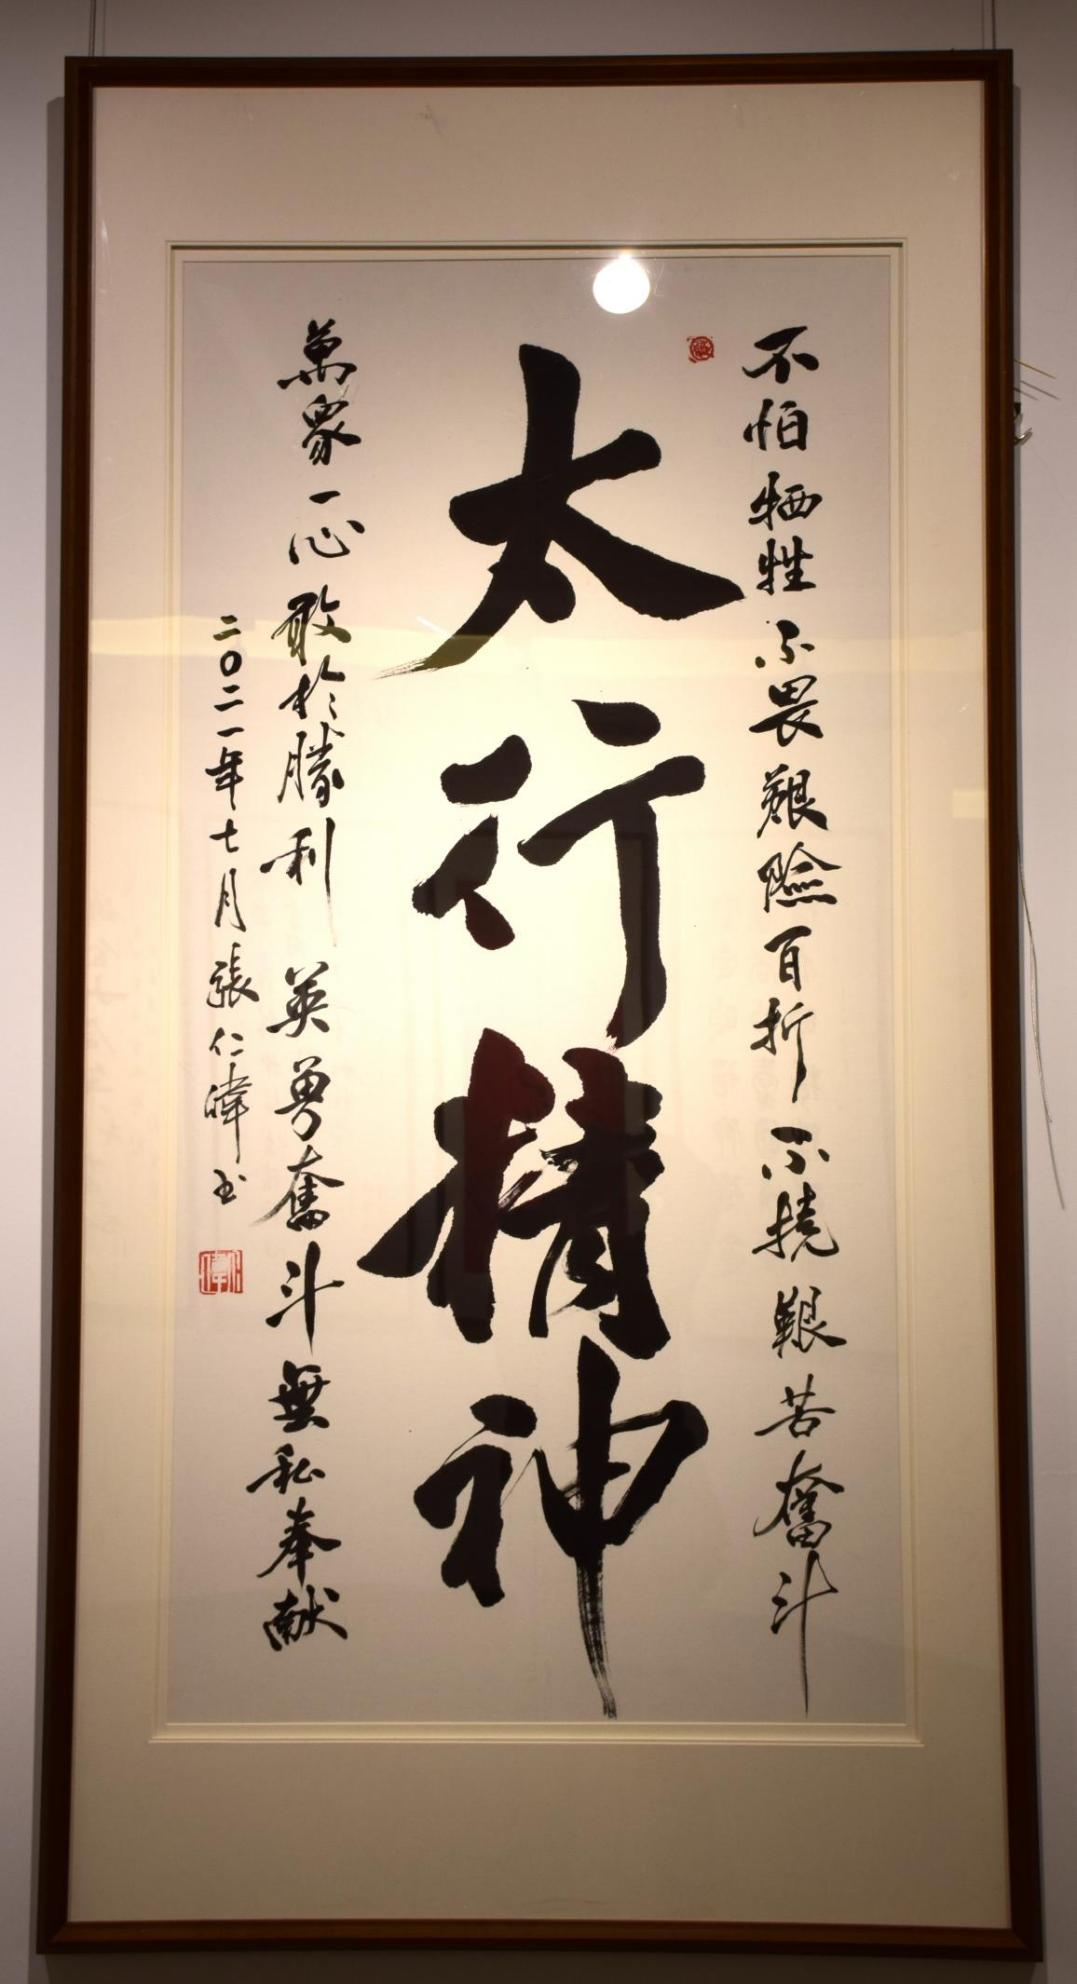 不怕牺牲不畏艱險百折不撓艱苦奮斗
太行精神
萬衆一心敢於勝利英勇奮斗無私奉献
二〇二一年七月張仁暐书